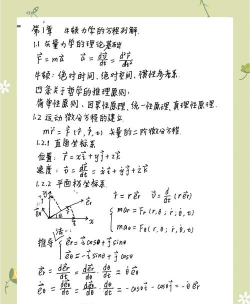 第1章 牛顿力学的方程剖解.
1.1 矢量力学的理论基础
F⃗ = ma⃗  a⃗ = dv⃗/dt = d²r⃗/dt²
牛顿: 绝对时间, 绝对空间, 惯性参考系.
四条关于哲学的推理原则:
简单性原则、因果性原理、统一性原理、真理性原理.
1.2 运动微分方程的建立
mr̈⃗ = F⃗(r⃗, ṙ⃗, t) 矢量的二阶微分方程.
1.2.1 直角坐标系
位置: r⃗ = xi⃗ + yj⃗ + zk⃗
速度: v⃗ = dr⃗/dt = ẋi⃗ + ẏj⃗ + żk⃗
1.2.2 平面极坐标系
r⃗ = r e⃗r  v⃗ = d/dt (r e⃗r)
mar = Fr (r, θ, ṙ, θ̇, t)
maθ = Fθ (r, θ, ṙ, θ̇, t)
推导 e⃗r = i⃗cosθ + j⃗sinθ
e⃗θ = -i⃗sinθ + j⃗cosθ
ė⃗r = de⃗r/dt = de⃗r/dθ · dθ/dt = θ̇ e⃗θ
ė⃗θ = de⃗θ/dt = de⃗θ/dθ · dθ/dt = -cosθi⃗ - θ̇ e⃗r